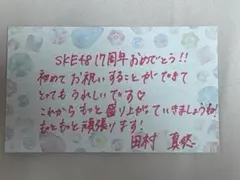 SKE48 17周年おめでとう!!
初めてお祝いすることができて
とってもうれしいです♡
これからもっと盛り上がっていきましょうね!
もっともっと頑張ります!
田村 真悠